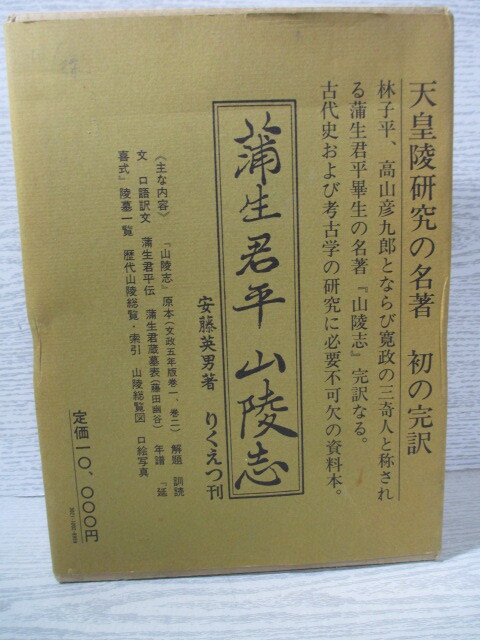 天皇陵研究の名著 初の完訳
林子平、高山彦九郎とならび寛政の三奇人と称され
る蒲生君平畢生の名著『山陵志』完訳なる。
古代史および考古学の研究に必要不可欠の資料本。
蒲生君平 山陵志
安藤英男著 りくえつ刊
《主な内容》 『山陵志』原本(文政五年版巻一、巻二) 解題 訓読
文 口語訳文 蒲生君平伝 蒲生君蔵墓表(藤田幽谷) 年譜 『延
喜式』陵墓一覧 歴代山陵総覧・索引 山陵総覧図 口絵写真
定価一〇、〇〇〇円